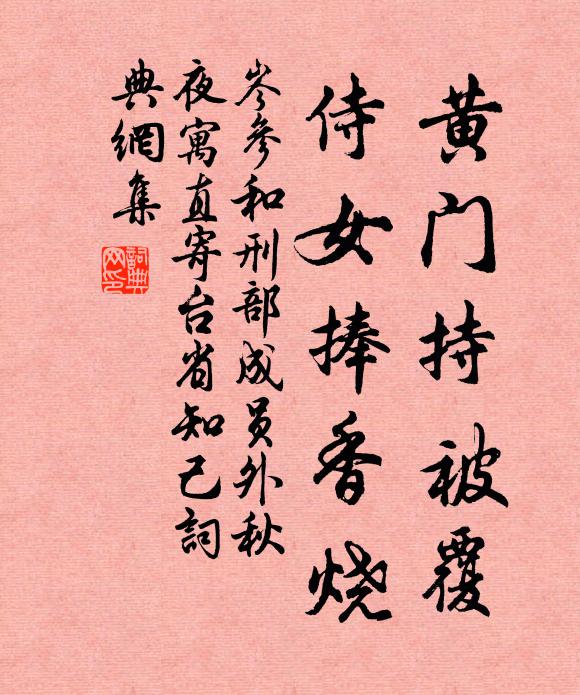 黄门持被覆
侍女捧香烧
岑参和刑部成员外秋
夜寓直寄台省知己詞
典網集
詞典網印